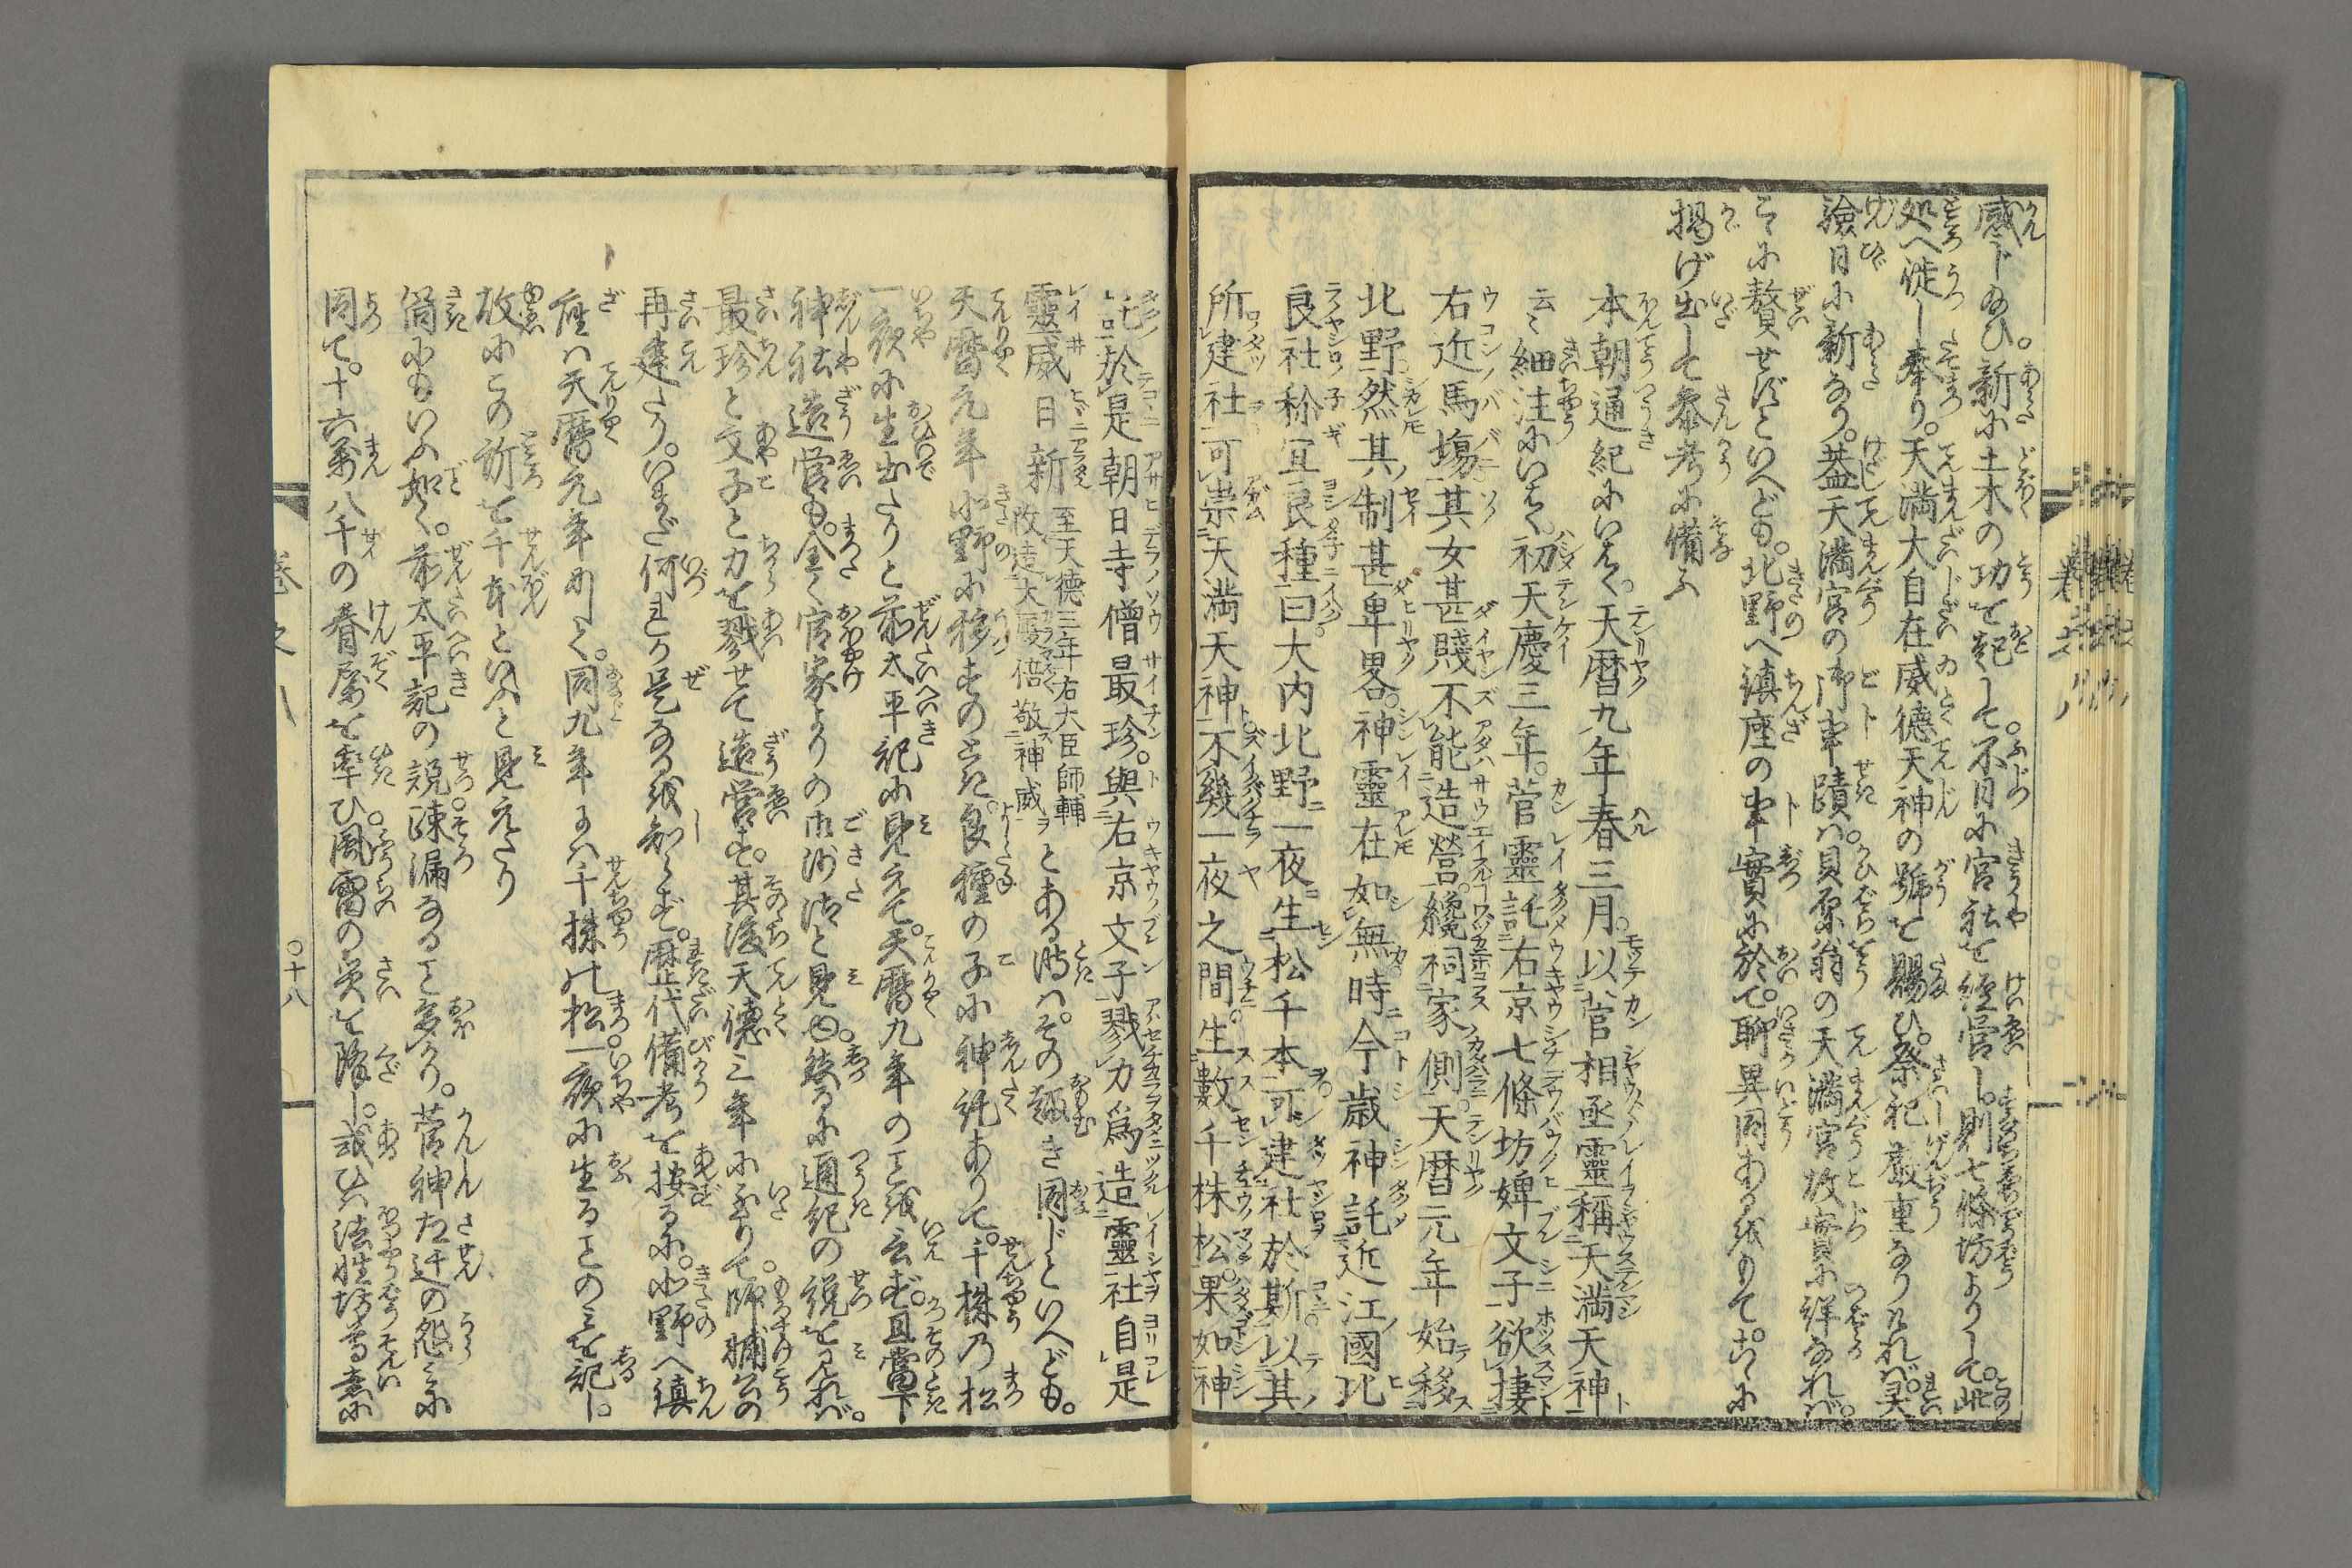 感じ給ひ。新に土木の功を起して。不日に官社を経営し。則七條坊よりして。此
処へ徙し奉り。天満大自在威徳天神の號を賜ひ。祭祀嚴重なりければ。灵
驗日に新なり。蓋天満宮の御事蹟ハ。貝原翁の天満宮故實に詳なれバ。
こゝに贅せずといへども。北野へ鎮座の事實に於て。聊異同あるをもて。こゝに
掲げ出して參考に備ふ
本朝通紀にいはく。天曆九年春三月。以菅相丞靈稱天満天神
云々細注にいはく。初天慶三年。菅靈託右京七條坊婢文子欲捿
右近馬塲其女甚賤不能造營。纔祠家側。天曆元年始移
北野。然其制甚卑畧。神靈在如無時今歲神託近江國比
良社祢宜良種曰大内北野一夜生松千本可建社於斯以其
所建社可崇天満天神不幾一夜之間。生數千株松。果如神
託於是朝日寺僧最珍。與右京文子戮力爲造靈社自是
靈威日新至天德三年右大臣師輔改造大厦倍敬神威とある時ハ。その趣き同じといへども。
天曆元年北野に移すのとき。良種の子に神託ありて。千株乃松
一夜に生出たりと前太平記に見えて。天曆九年のことを云ず。且當下
神社造営も。全く官家よりの御沙汰と見ゆ。然るに通紀の説を見れバ。
最珍と文子と力を戮せて造営す。其後天德三年に至りて。師輔公の
再建たり。いまだ何れか是なるを知らず。歴代備考を按るに。北野へ鎮
座ハ天曆元年にして。同九年にハ千株の松。一夜に生ることのミを記し。
故にこの所を千本といふと見えたり
篇にもいふ如く。前太平記の説疎漏なること多かり。菅神左迁の怨ミに
因て。十六萬八千の眷属を率ひ。風雷の災を降し。或ハ法性坊尊意に
巻之八
〇十八